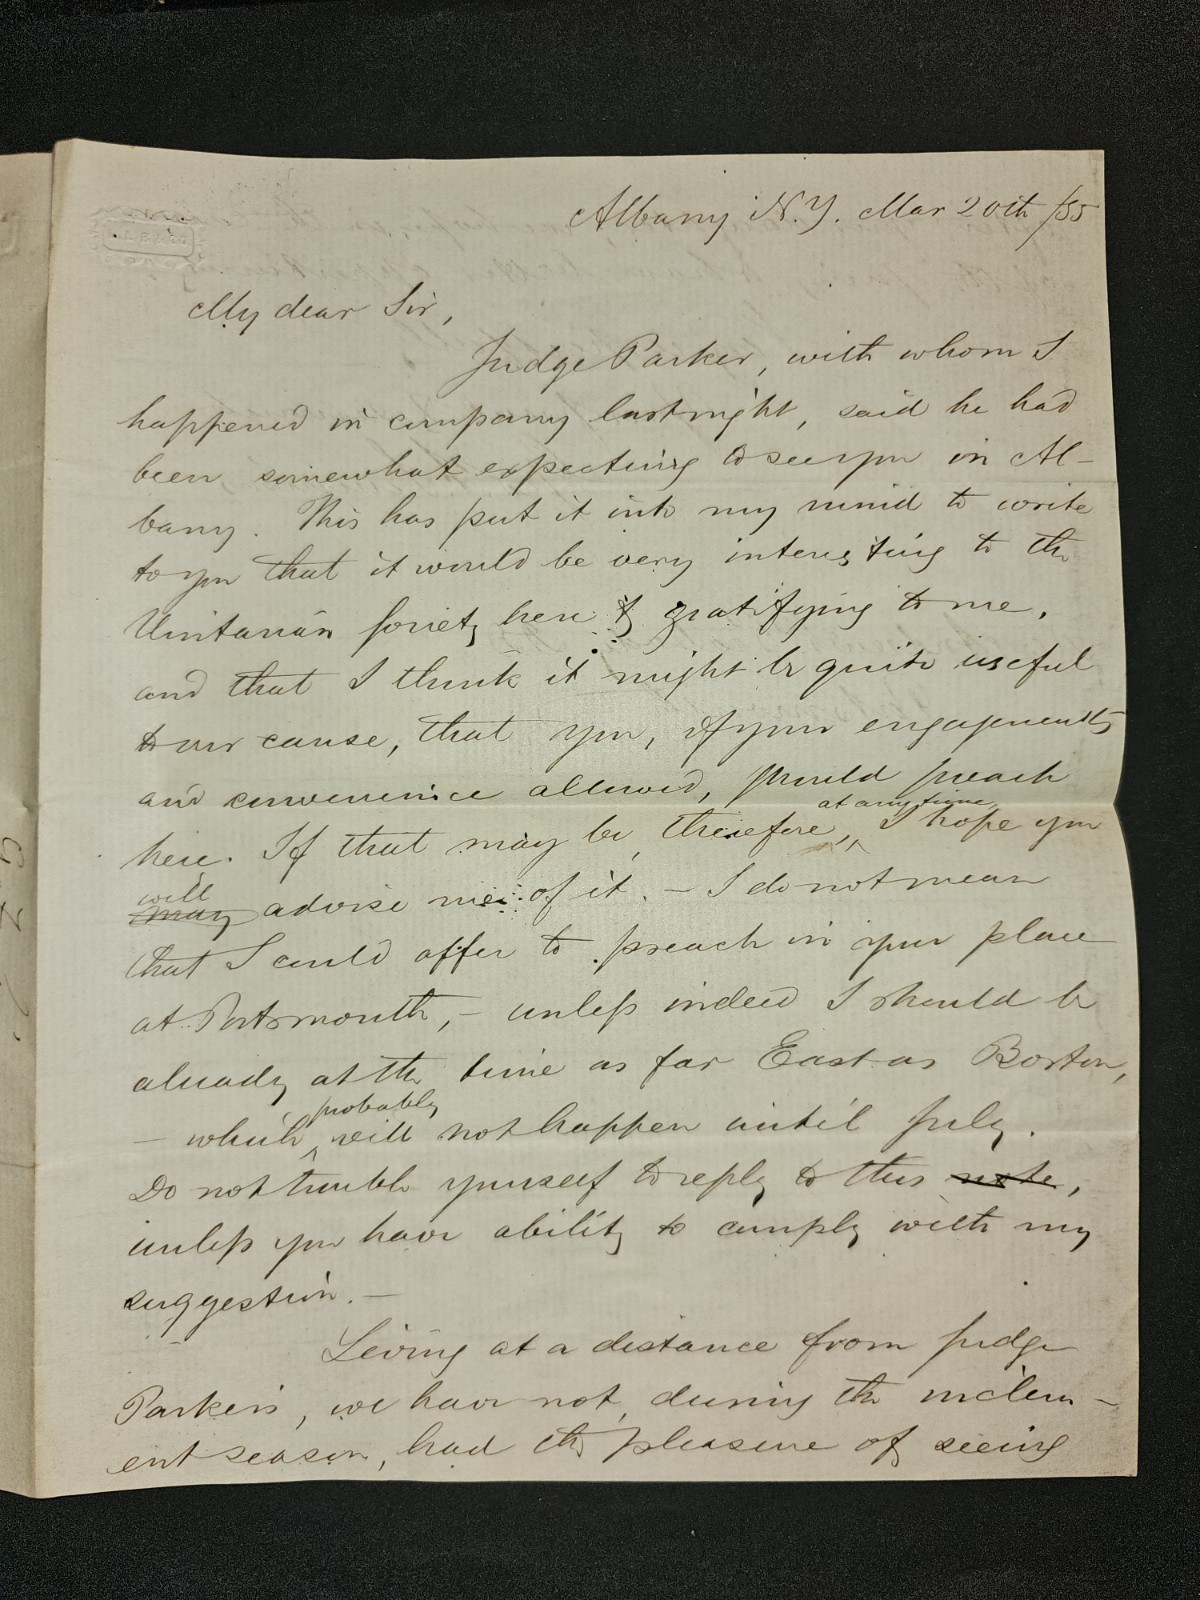 Albany N.Y. Mar 20th /55
My dear Sir,
Judge Parker, with whom I
happened in company last night, said he had
been somewhat expecting to see you in Al-
bany. This has put it into my mind to write
to you that it would be very interesting to the
Unitarian Society here & gratifying to me,
and that I think it might be quite useful
to our cause, that you, if your engagements
and convenience allowed, should preach
at any time
here. If that may be, therefore, I hope you
will
may advise me of it. – I do not mean
that I could offer to preach in your place
at Portsmouth, – unless indeed I should be
already at the time as far East as Boston,
probably
– which will not happen until July.
Do not trouble yourself to reply to this note,
unless you have ability to comply with my
suggestion. –
Living at a distance from Judge
Parker's, we have not, during the inclem-
ent season, had the pleasure of seeing